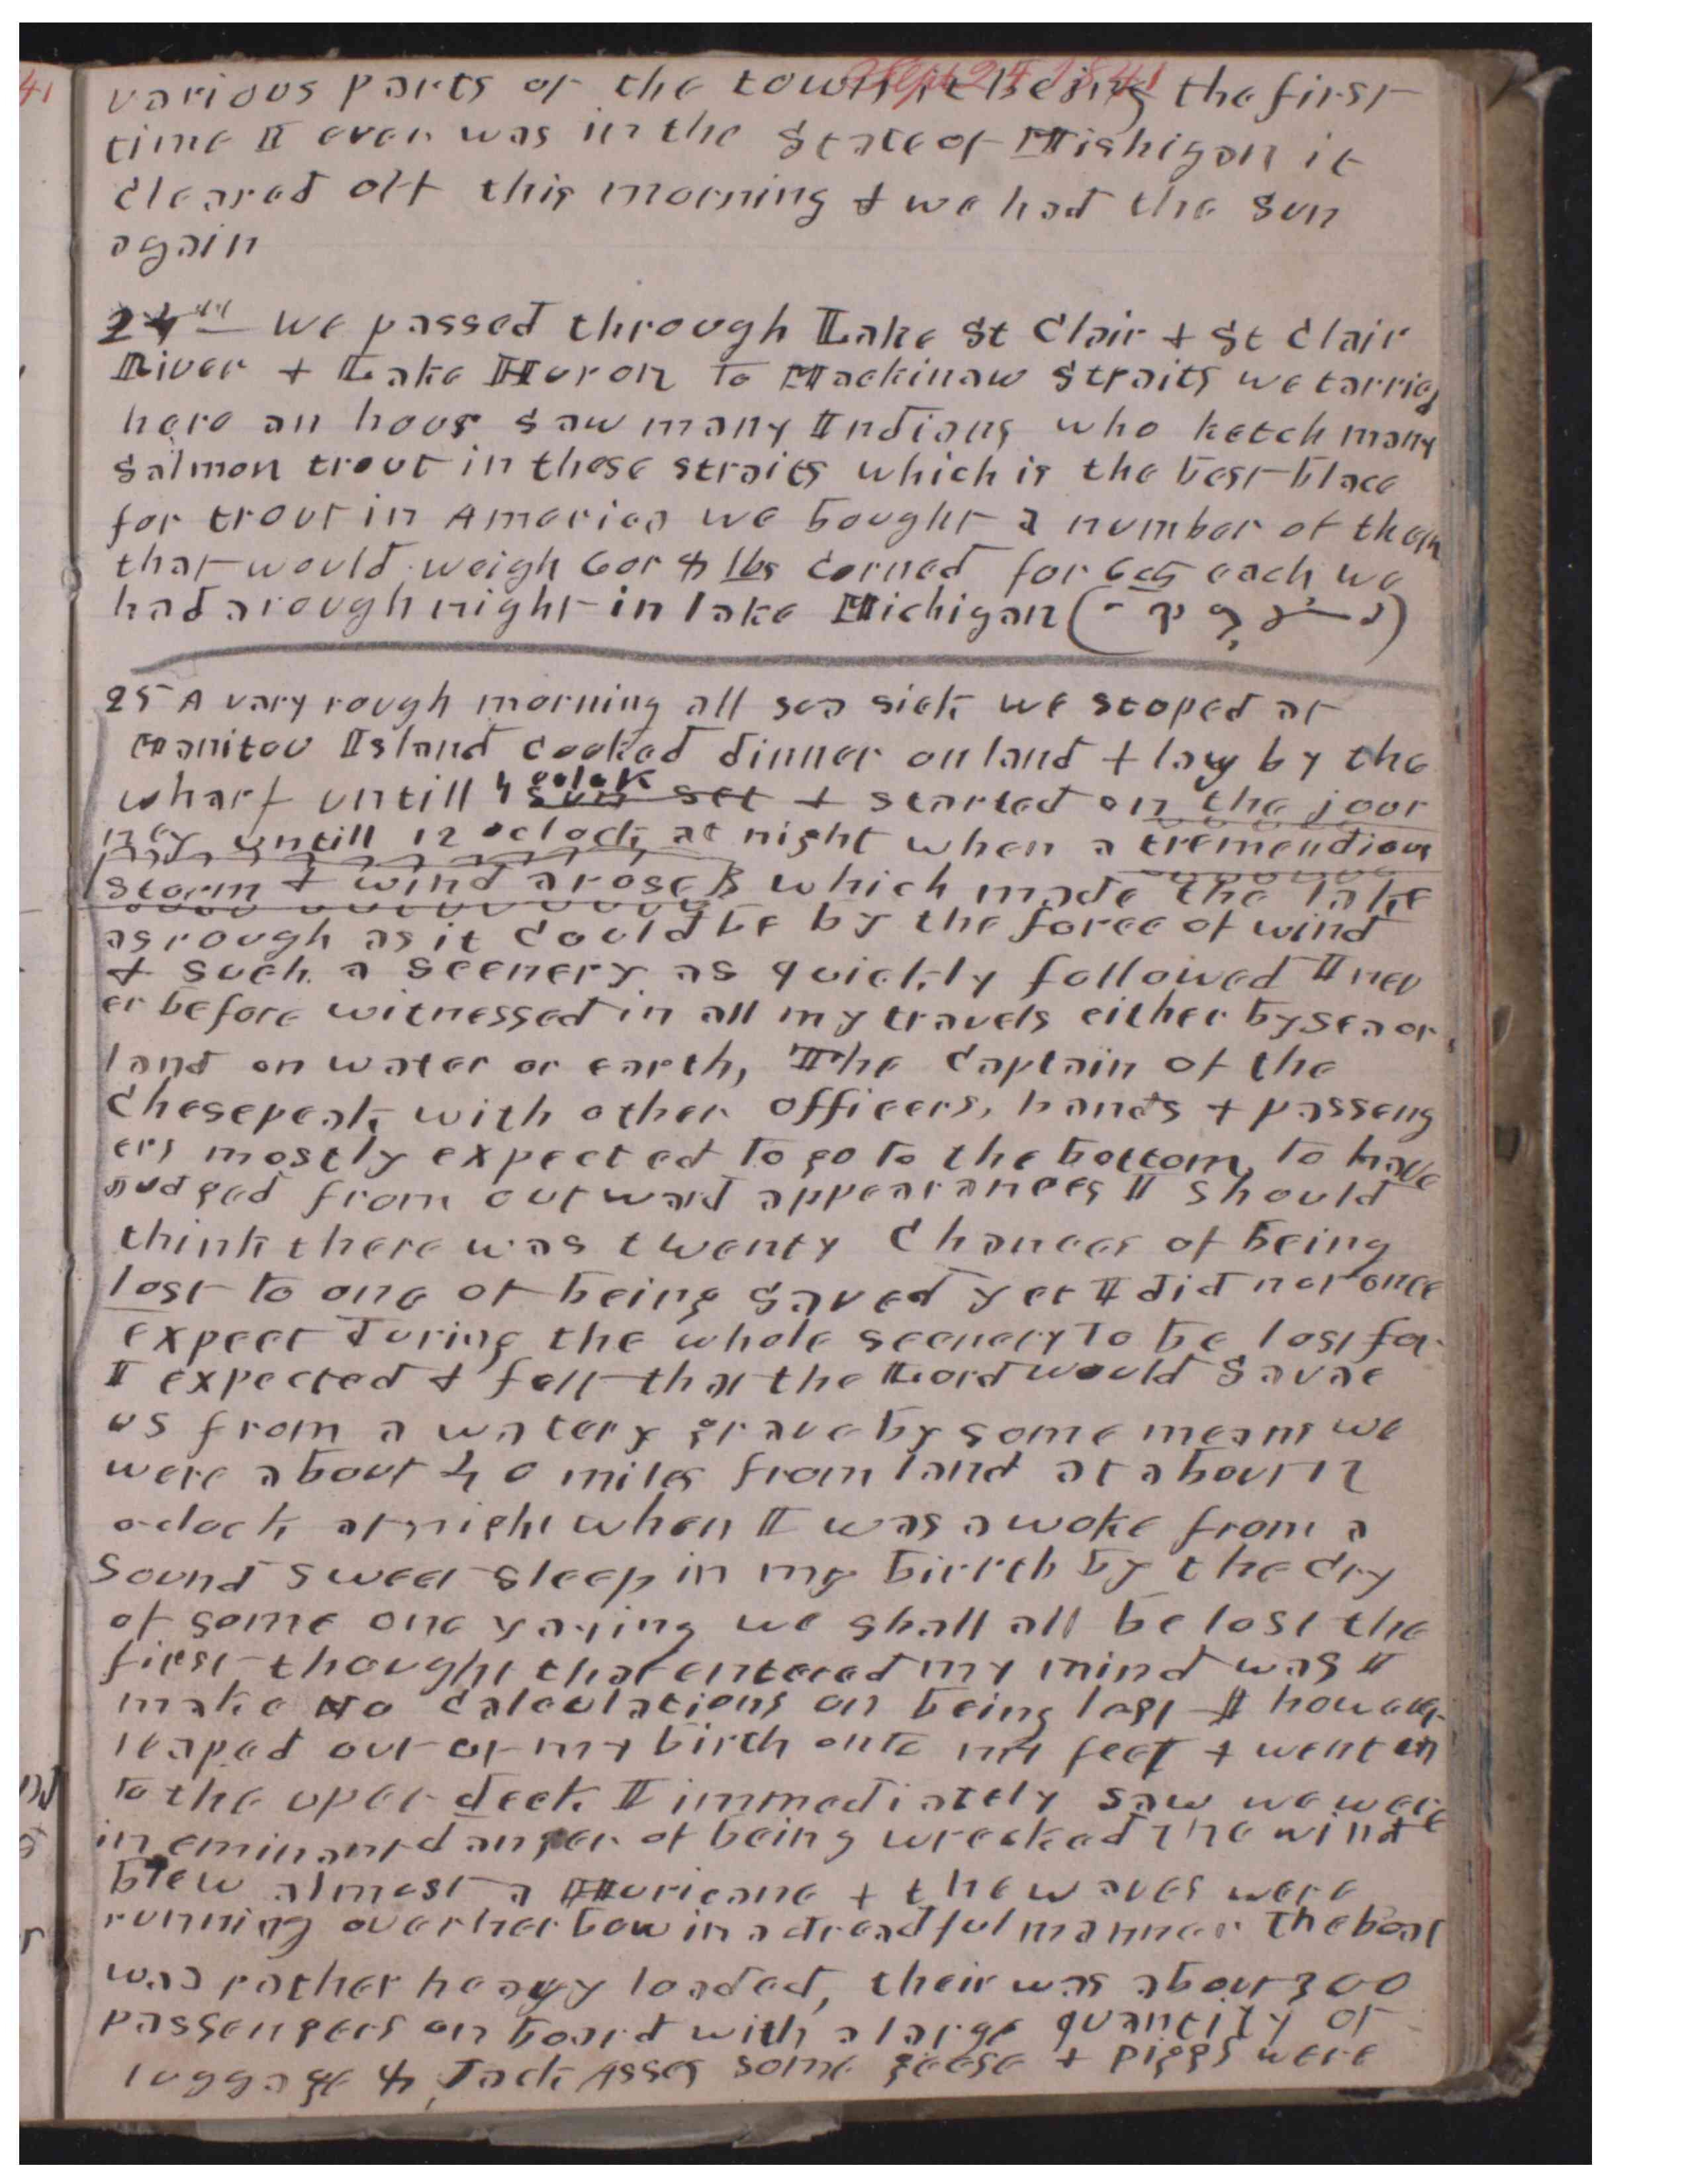 Sept 24 1841
various parts of the town it Being the first
time I ever was in the State of Mishigan it
cleared off this morning & we had the Sun
again
24th we passed through Lake St Clair & St Clair
River & Lake Huron to Mackinaw Straits we tarried
here an hour saw many Indians who ketch many
Salmon trout in these straits which is the best place
for trout in America we bought a number of them
that would weigh 6 or 8 lbs corned for 6cts each we
had a rough night in lake Michigan (
25 A vary rough morning all sea sick we stoped at
Manitou Island cooked dinner on land & lay by the
wharf untill 4 oclok sun set & started on the jour
ney untill 12 oclock at night when a tremendious
storm & wind arose which made the lake
as rough as it could be by the force of wind
& such a scenery as quickly followed I nev
er before witnessed in all my travels either by sea or
land on water or earth, The Captain of the
Chesepeak with other officers, hands & passeng
ers mostly expected to go to the bottom, to have
judged from outward appearances I should
think there was twenty Chances of being
lost to one of being saved yet I did not once
expect during the whole scenery to be lost for
I expected & felt that the Lord would Savae
us from a watery grave by some means we
were about 40 miles from land at about 12
oclock at night when I was awoke from a
Sound sweet sleep in my birrth by the cry
of some one saying we shall all be lost the
first thought that entered my mind was I
make no calculations on being lost I however
leaped out of my birth onto my feet & went on
to the uper deck I immediately saw we were
in eminant danger of being wrecked the wind
blew almost a Huricane & the waves were
running over her bow in a dreadful manner The boat
was rather heavy loaded, their was about 300
passengers on board with a large quantity of
luggage & Jack Asses some geese & piggs were